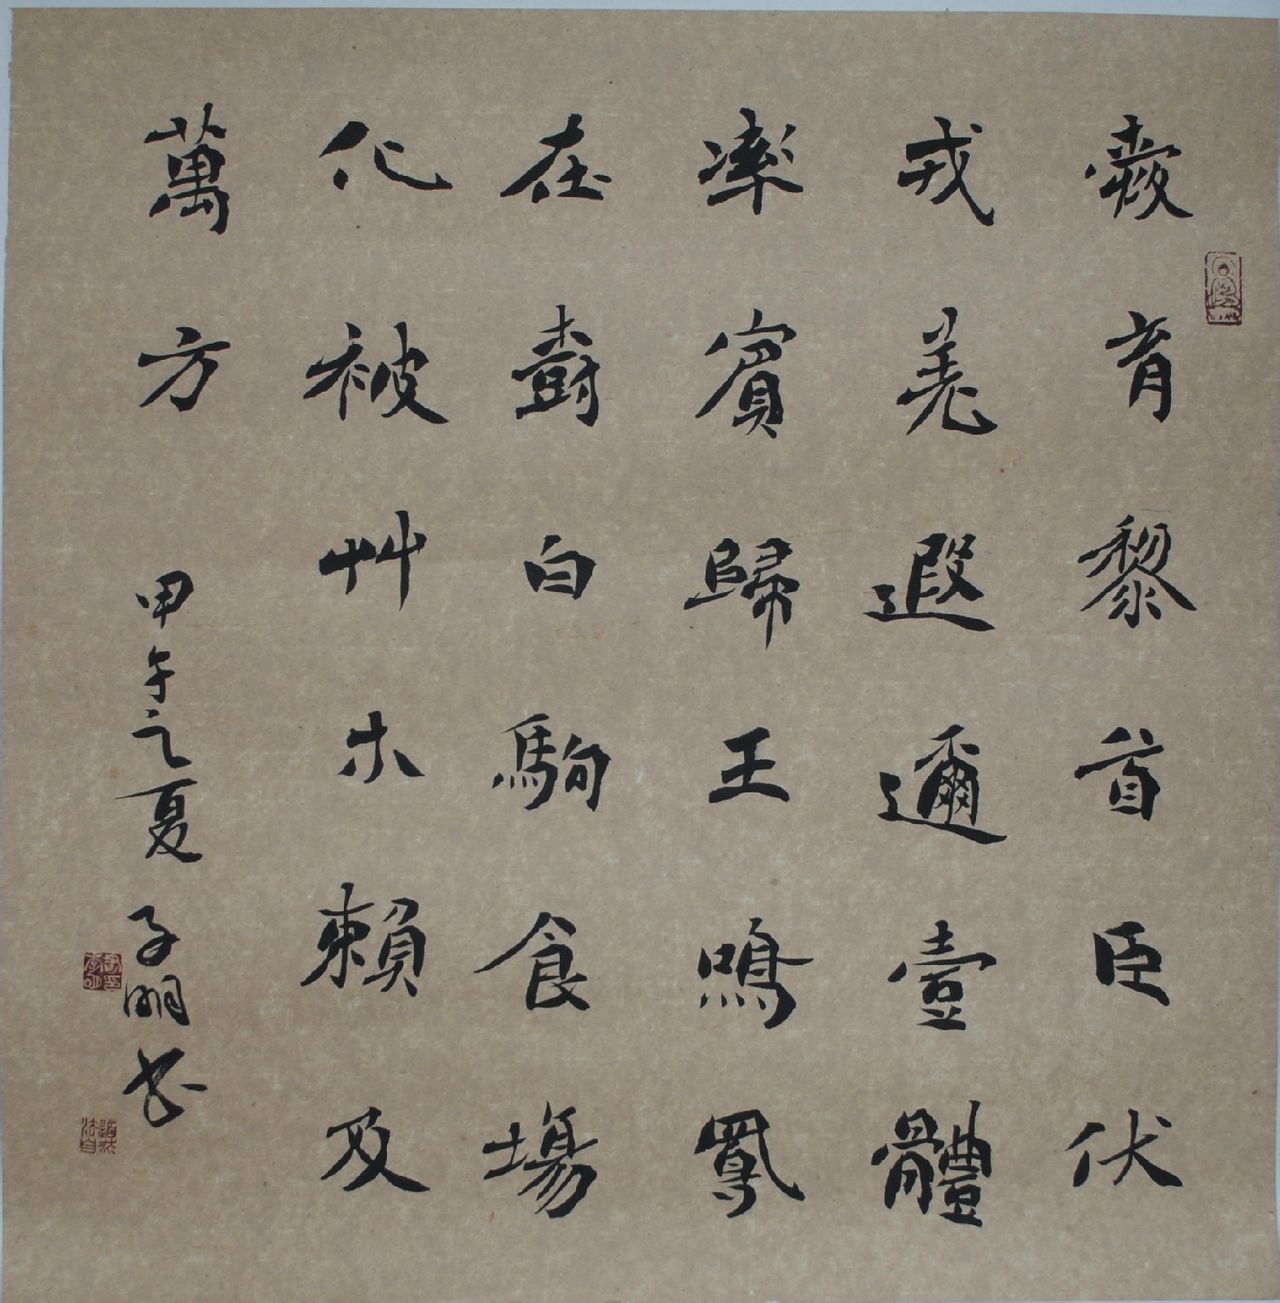 愛育黎首臣伏
戎羌遐邇壹體
率賓歸王鳴鳳
在樹白駒食場
化被草木賴及
萬方
甲午之夏子明书
道法自然